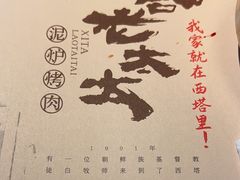 老太太
泥炉烤肉
XITA
LAOTAITAI
我家就在西塔里！
1901年
有一位朝鲜族基督教
徒白牧师来到了西塔